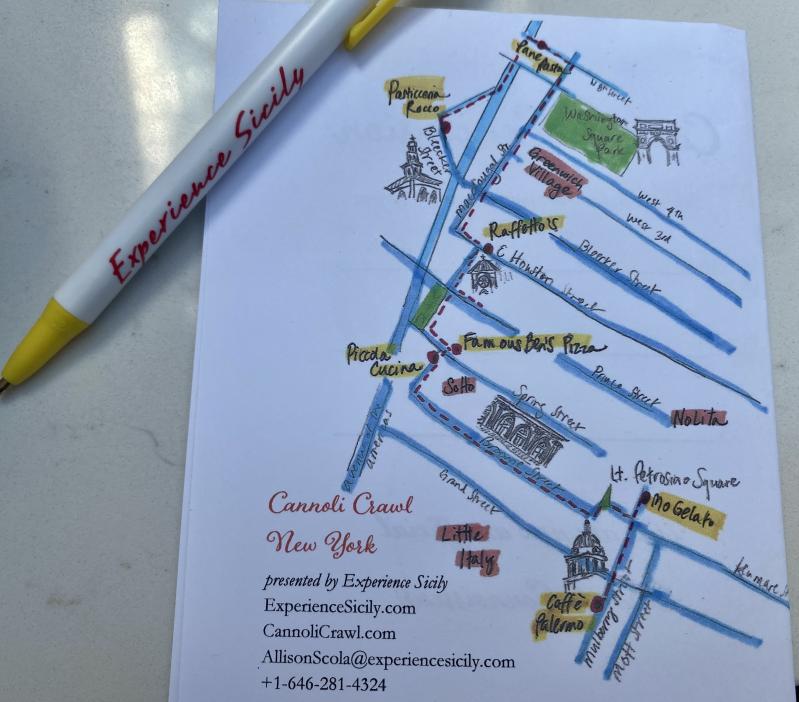 Experience Sicily
Pane Pasta
Pasticceria
Rocco
Bleecker
Street
Washington
Square
Park
MacDougal St
Greenwich
Village
West 4th
West 3rd
Raffetto's
Bleecker Street
E Houston Street
Famous Ben's Pizza
Piccola
Cucina
Soho
Prince Street
Nolita
Spring Street
Avenue of the
Americas
Broome Street
Grand Street
Lt. Petrosino Square
Mo Gelato
Little
Italy
Kenmare St
Caffè
Palermo
Mulberry Street
Mott Street
Cannoli Crawl
New York
presented by Experience Sicily
ExperienceSicily.com
CannoliCrawl.com
AllisonScola@experiencesicily.com
+1-646-281-4324